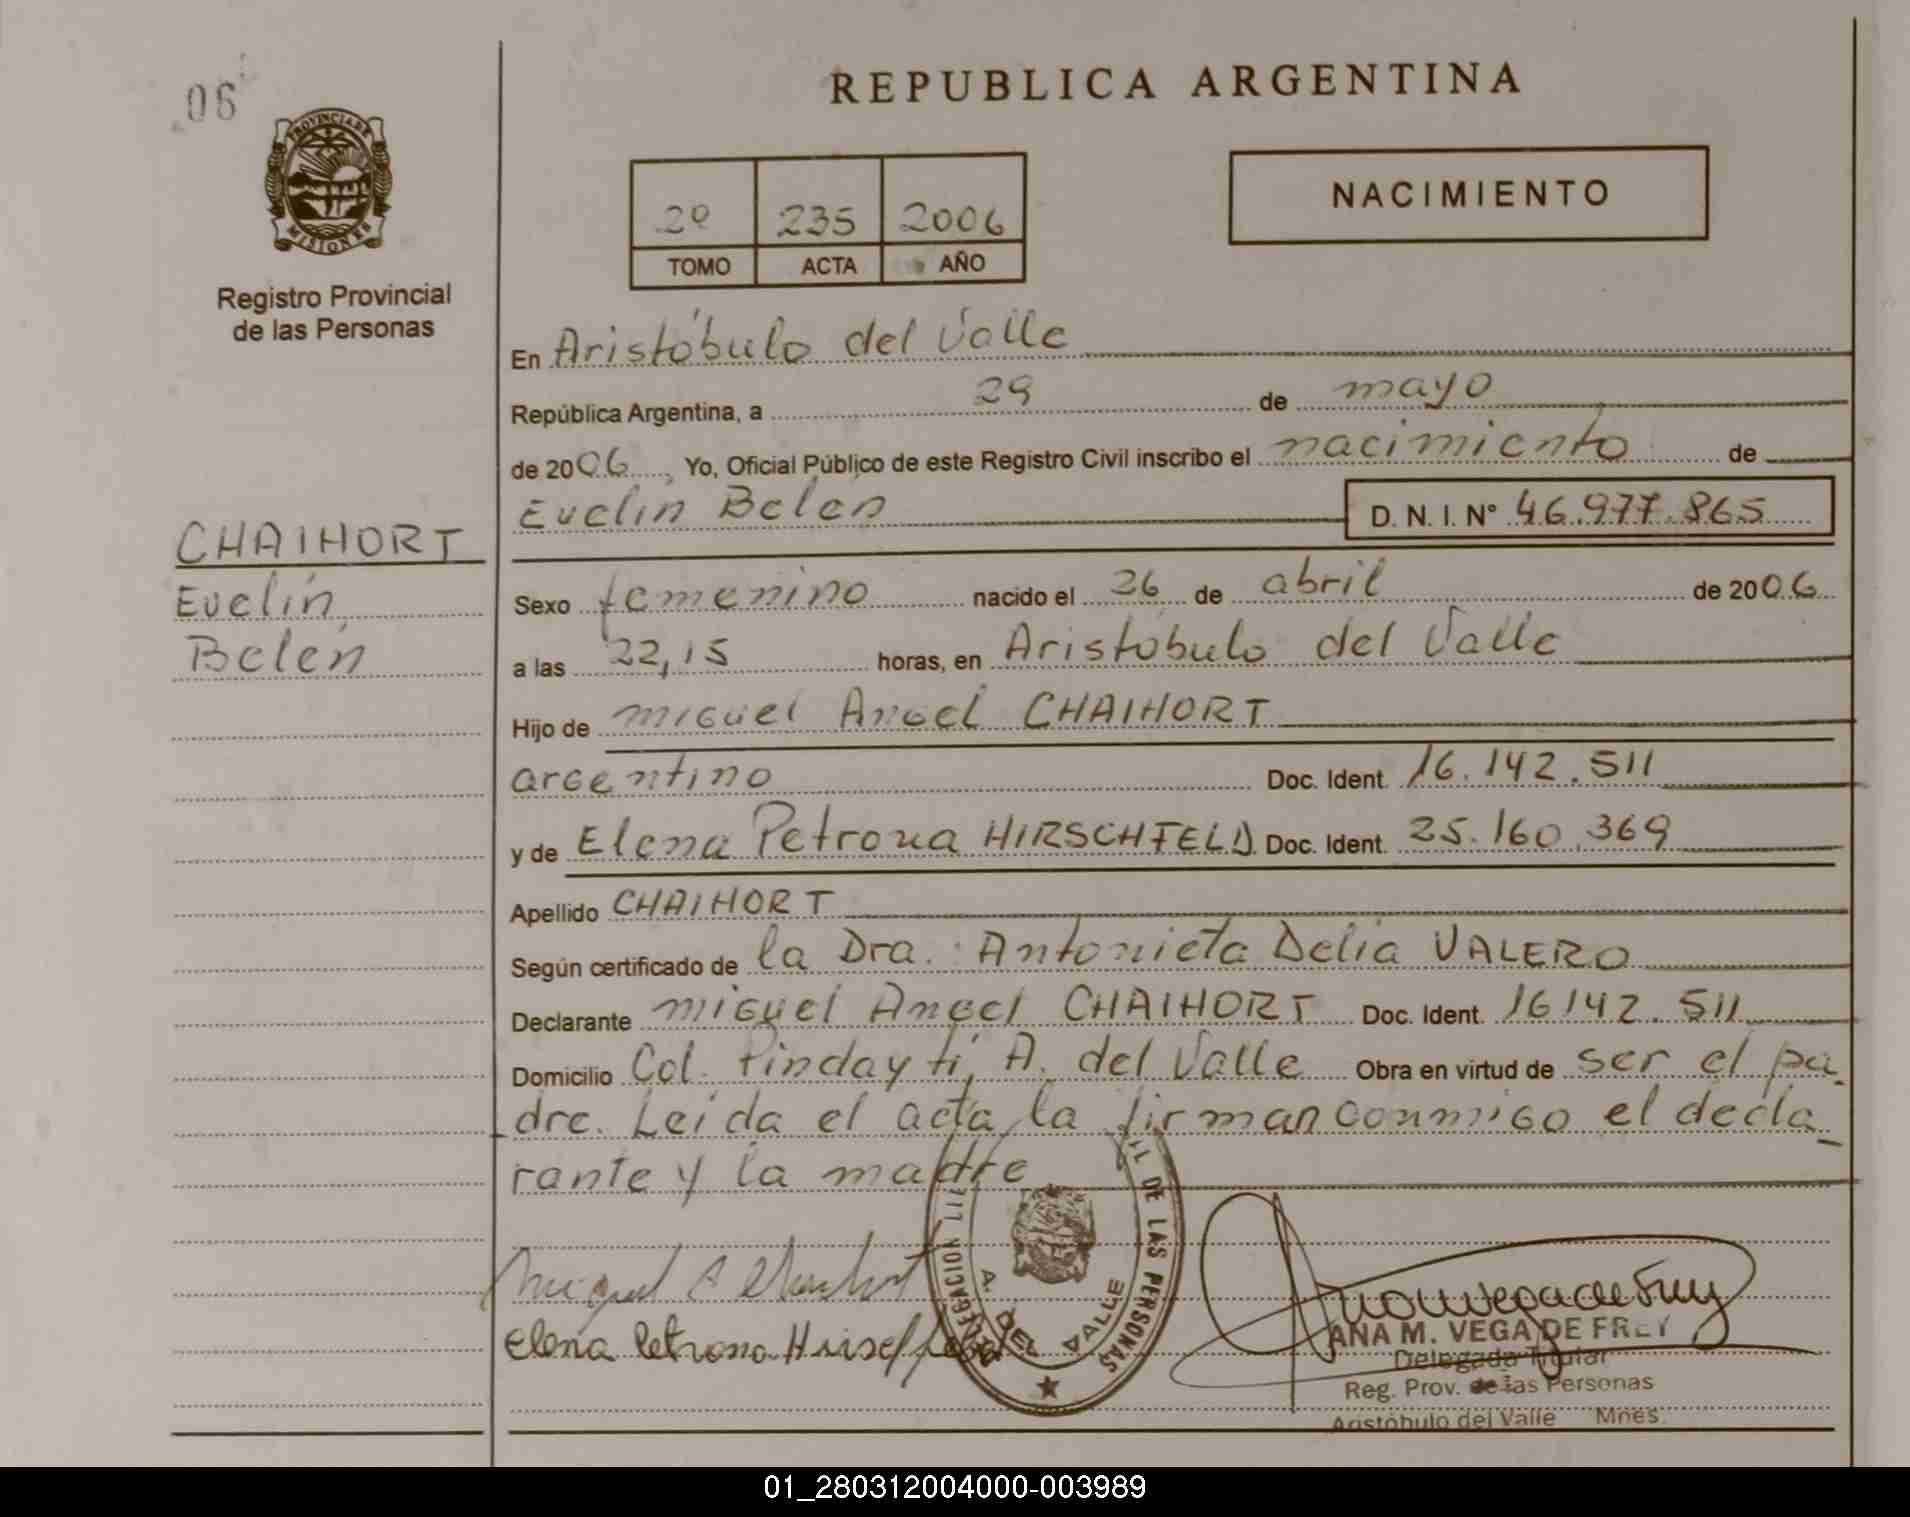 06
PROVINCIA DE
MISIONES
Registro Provincial
de las Personas
CHAIHORT
Evelin
Belén
REPUBLICA ARGENTINA
2º 235 2006
TOMO ACTA AÑO
NACIMIENTO
En Aristóbulo del Valle
República Argentina, a 29 de mayo
de 2006, Yo, Oficial Público de este Registro Civil inscribo el nacimiento de
Evelin Belen D. N. I. N° 46.977.865
Sexo femenino nacido el 26 de abril de 2006
a las 22,15 horas, en Aristóbulo del Valle
Hijo de miguel Angel CHAIHORT
argentino Doc. Ident. 16.142.511
y de Elena Petrona HIRSCHFELD Doc. Ident. 25.160.369
Apellido CHAIHORT
Según certificado de la Dra. Antonieta Delia VALERO
Declarante miguel Angel CHAIHORT Doc. Ident. 16142.511
Domicilio Col. Pindaytí, A. del Valle Obra en virtud de ser el pa-
dre. Leída el acta, la firman conmigo el decla-
rante y la madre
DE LAS PERSONAS
A. DEL VALLE
Miguel A Chaihort
Elena Petrona
ANA M. VEGA DE FREY
Delegada Titular
Reg. Prov. de las Personas
Aristóbulo del Valle Mnes.
01_280312004000-003989